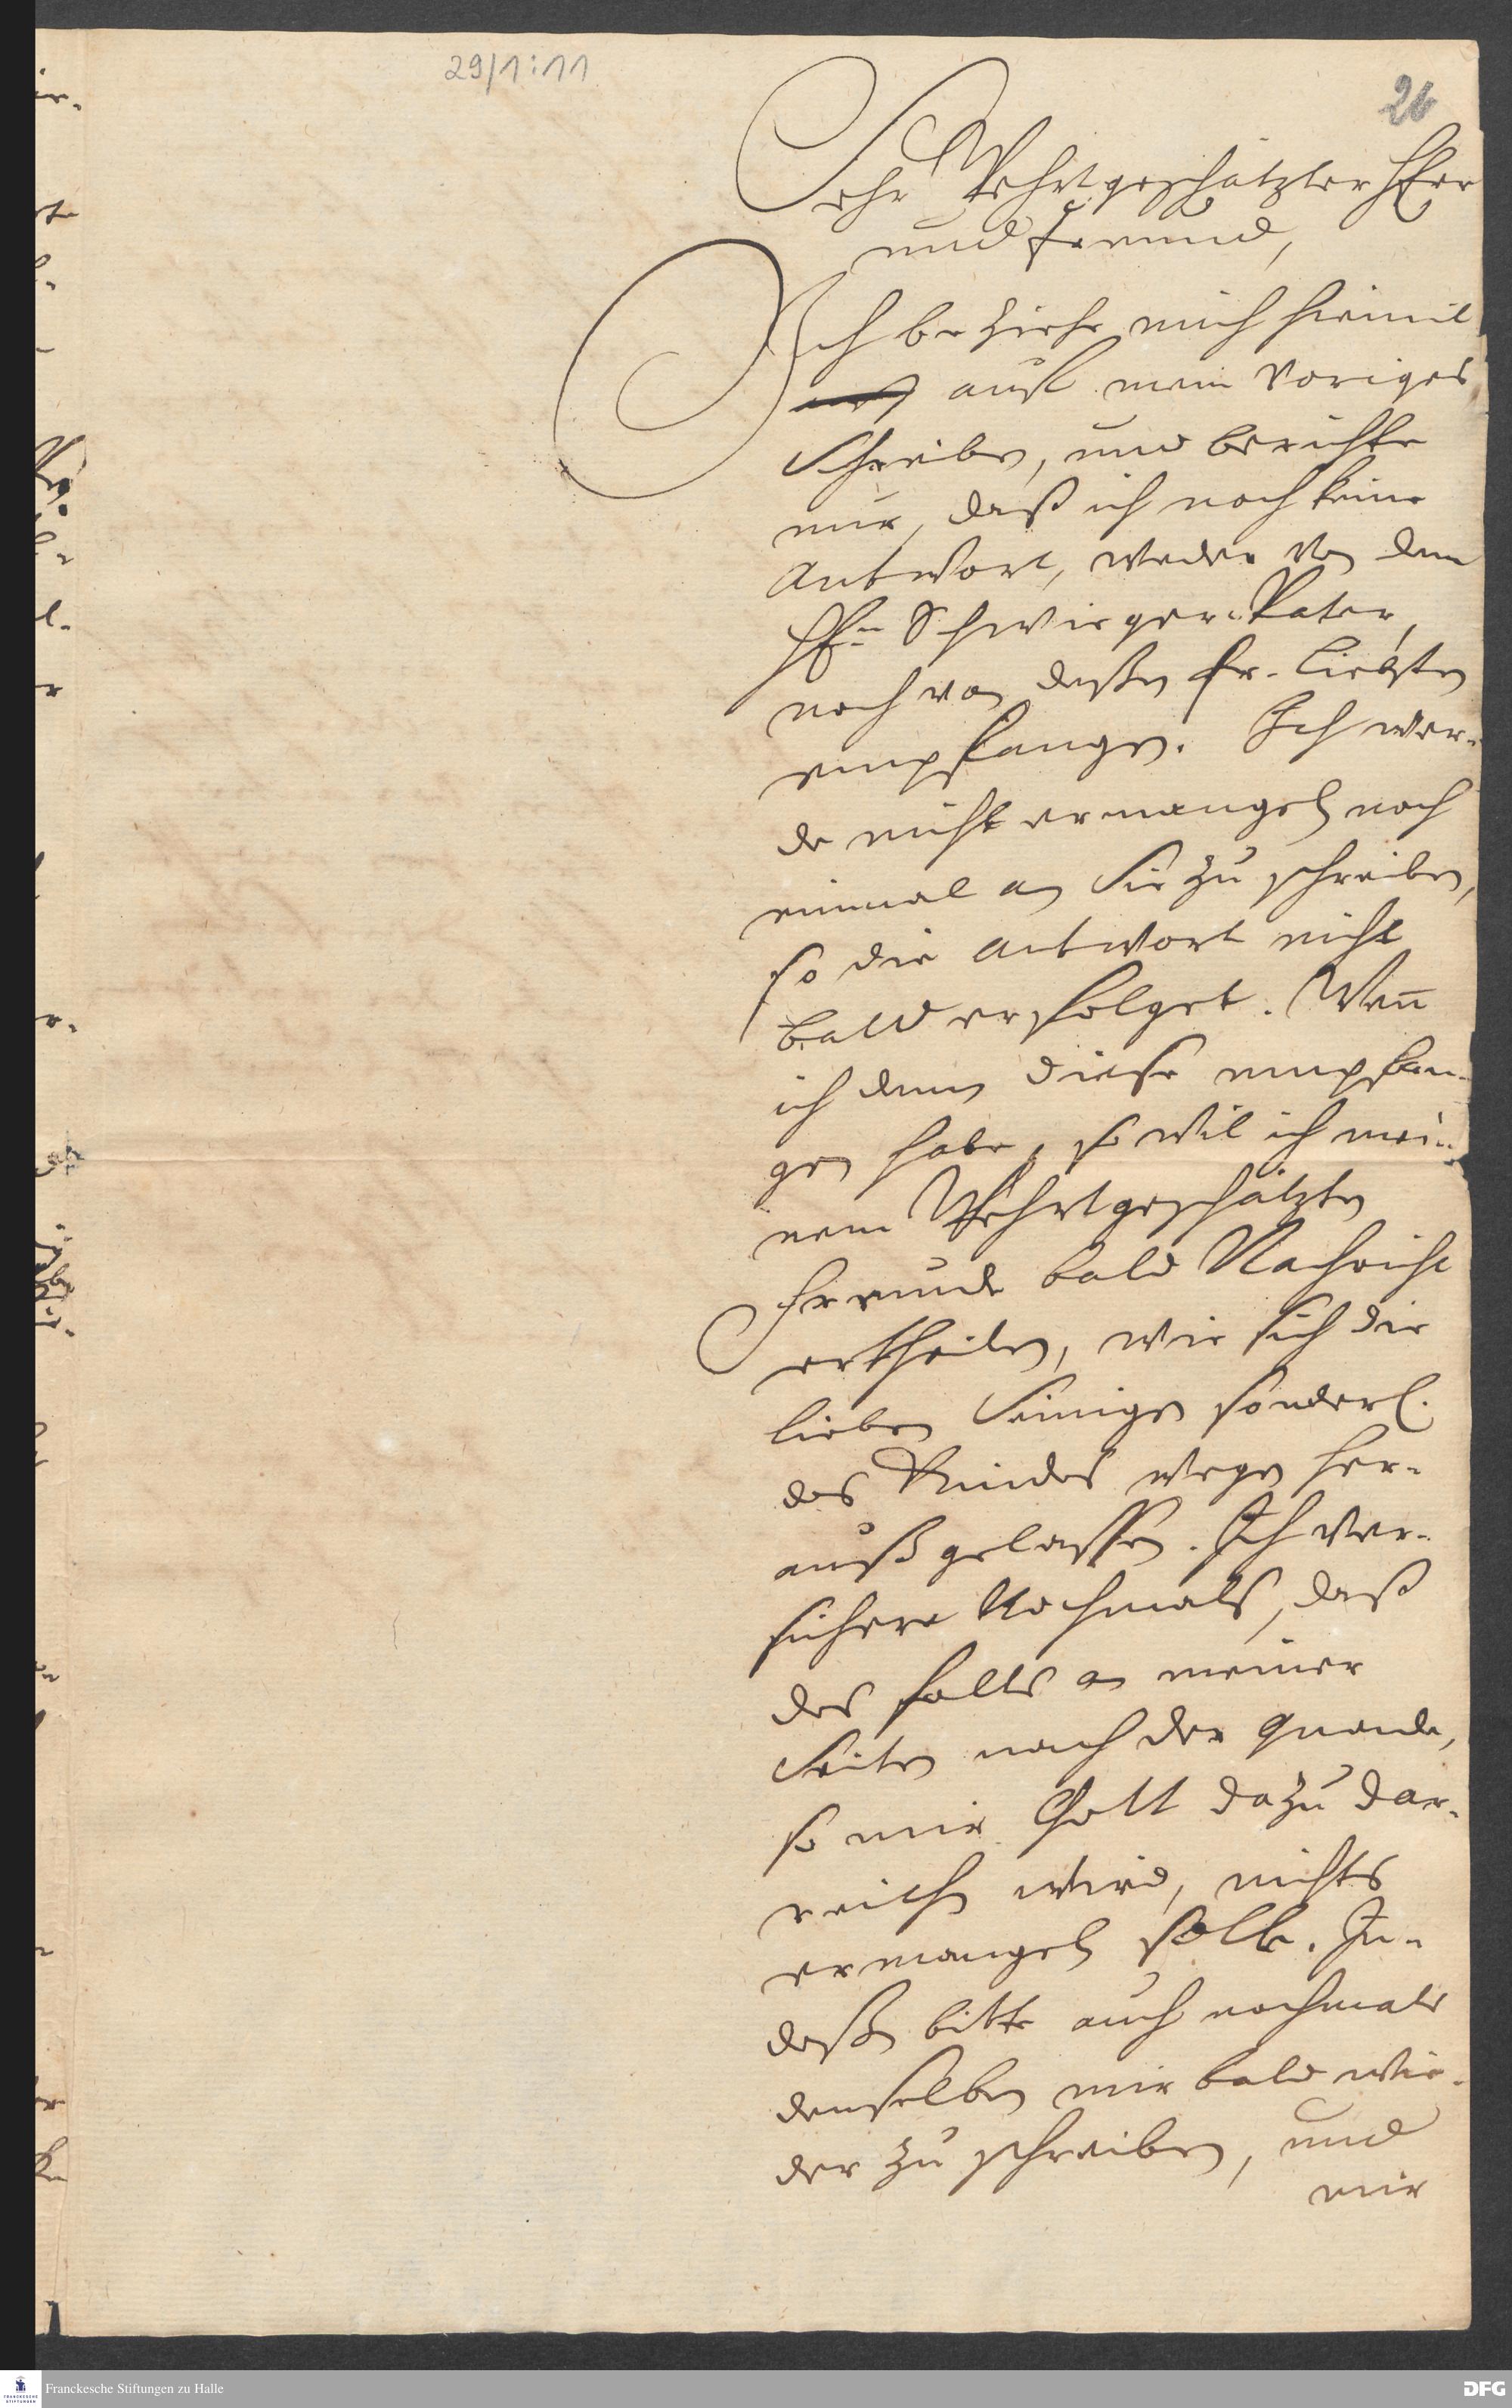 29/1:11
26
Sehr Wehrtgeschätzter HEer
und Freund,
Ich beziehe mich hiemit
auf mein voriges
Schreiben, und berichte
nur, daß ich noch keine
Antwort, weder von dem
HEn Schwieger-Vater,
noch von deßen Fr. Liebsten
empfangen. Ich wer-
de nicht ermangeln noch
einmal an Sie zu schreiben,
so die Antwort nicht
bald erfolget. Wenn
ich denn diese empfan-
gen habe, so wil ich mei-
nem Wehrtgeschätzten
Freunde bald Nachricht
ertheilen, wie sich die
lieben Seinigen sonderl.
des Kindes wegen her-
auß gelassen. Ich ver-
sichere Nochmals, daß
des falls an meiner
Seiten nach der Gnade,
so mir Gott dazu dar-
reichen wird, nichts
ermangeln solle. In-
deßen bitte auch nochmals
denselben mir bald wie-
der zu schreiben, und
mir
Franckesche Stiftungen zu Halle
DFG